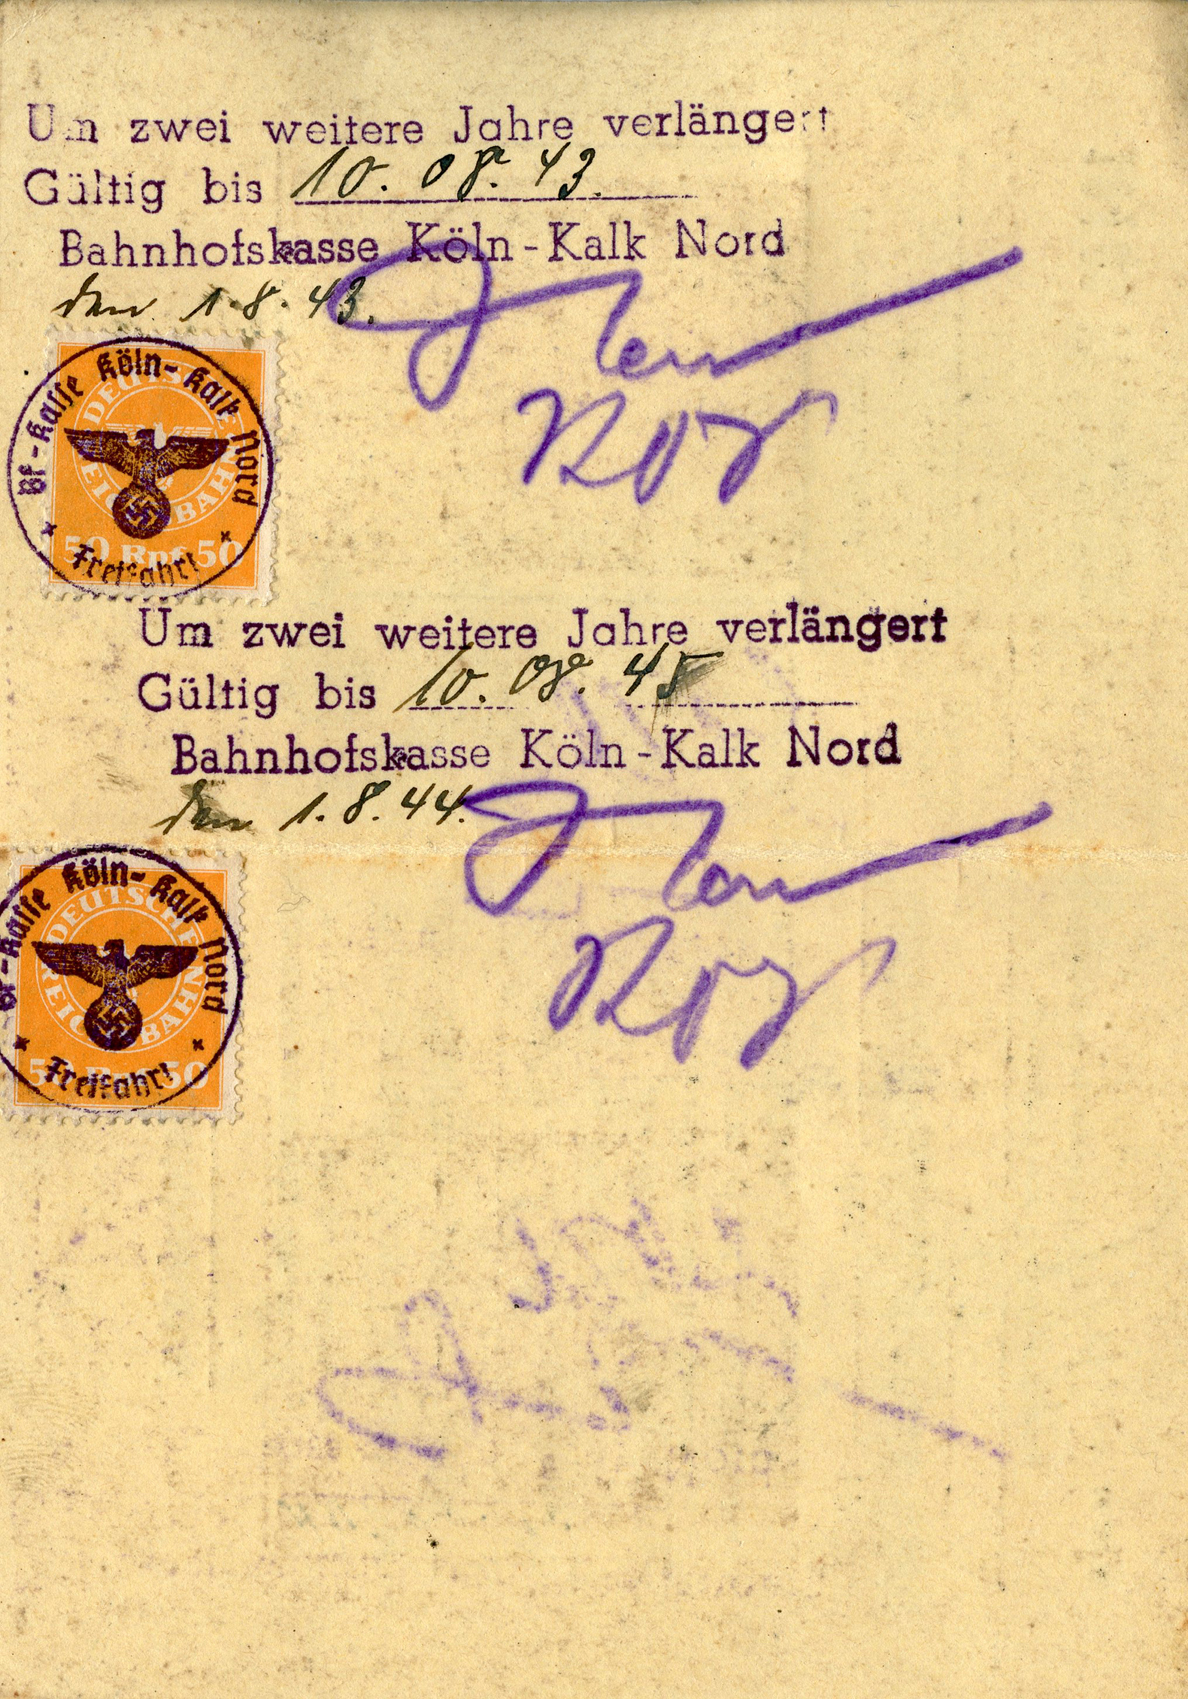 Um zwei weitere Jahre verlängert
Gültig bis 10.08.43.
Bahnhofskasse Köln-Kalk Nord
den 1.8.43.
Bf-Kasse Köln-Kalk Nord
DEUTSCHE REICHSBAHN
50 Rpf 50
Freifahrt
Um zwei weitere Jahre verlängert
Gültig bis 10.08.45
Bahnhofskasse Köln-Kalk Nord
den 1.8.44.
Bf-Kasse Köln-Kalk Nord
DEUTSCHE REICHSBAHN
50 Rpf 50
Freifahrt